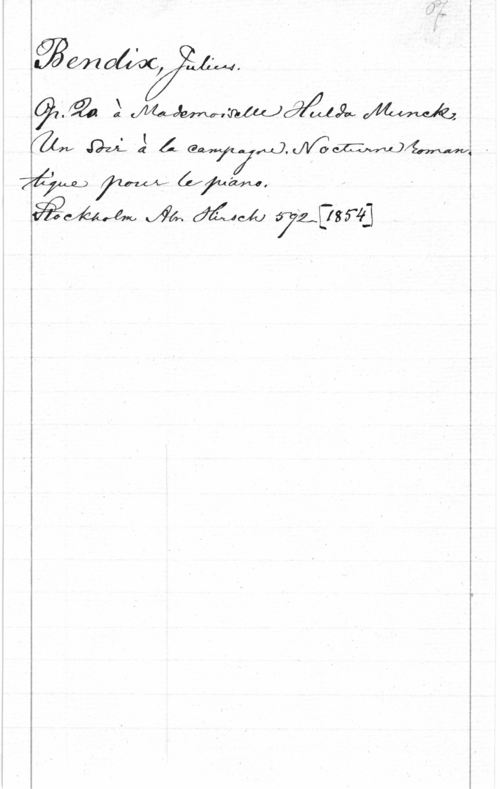 Bendix, Julius.
Op. 20. à Mademoiselle Hulda Munck,
Un Soir à la campagne. Nocturne roman-
tique pour le piano.
Stockholm Abr. Hirsch 592 [1854]